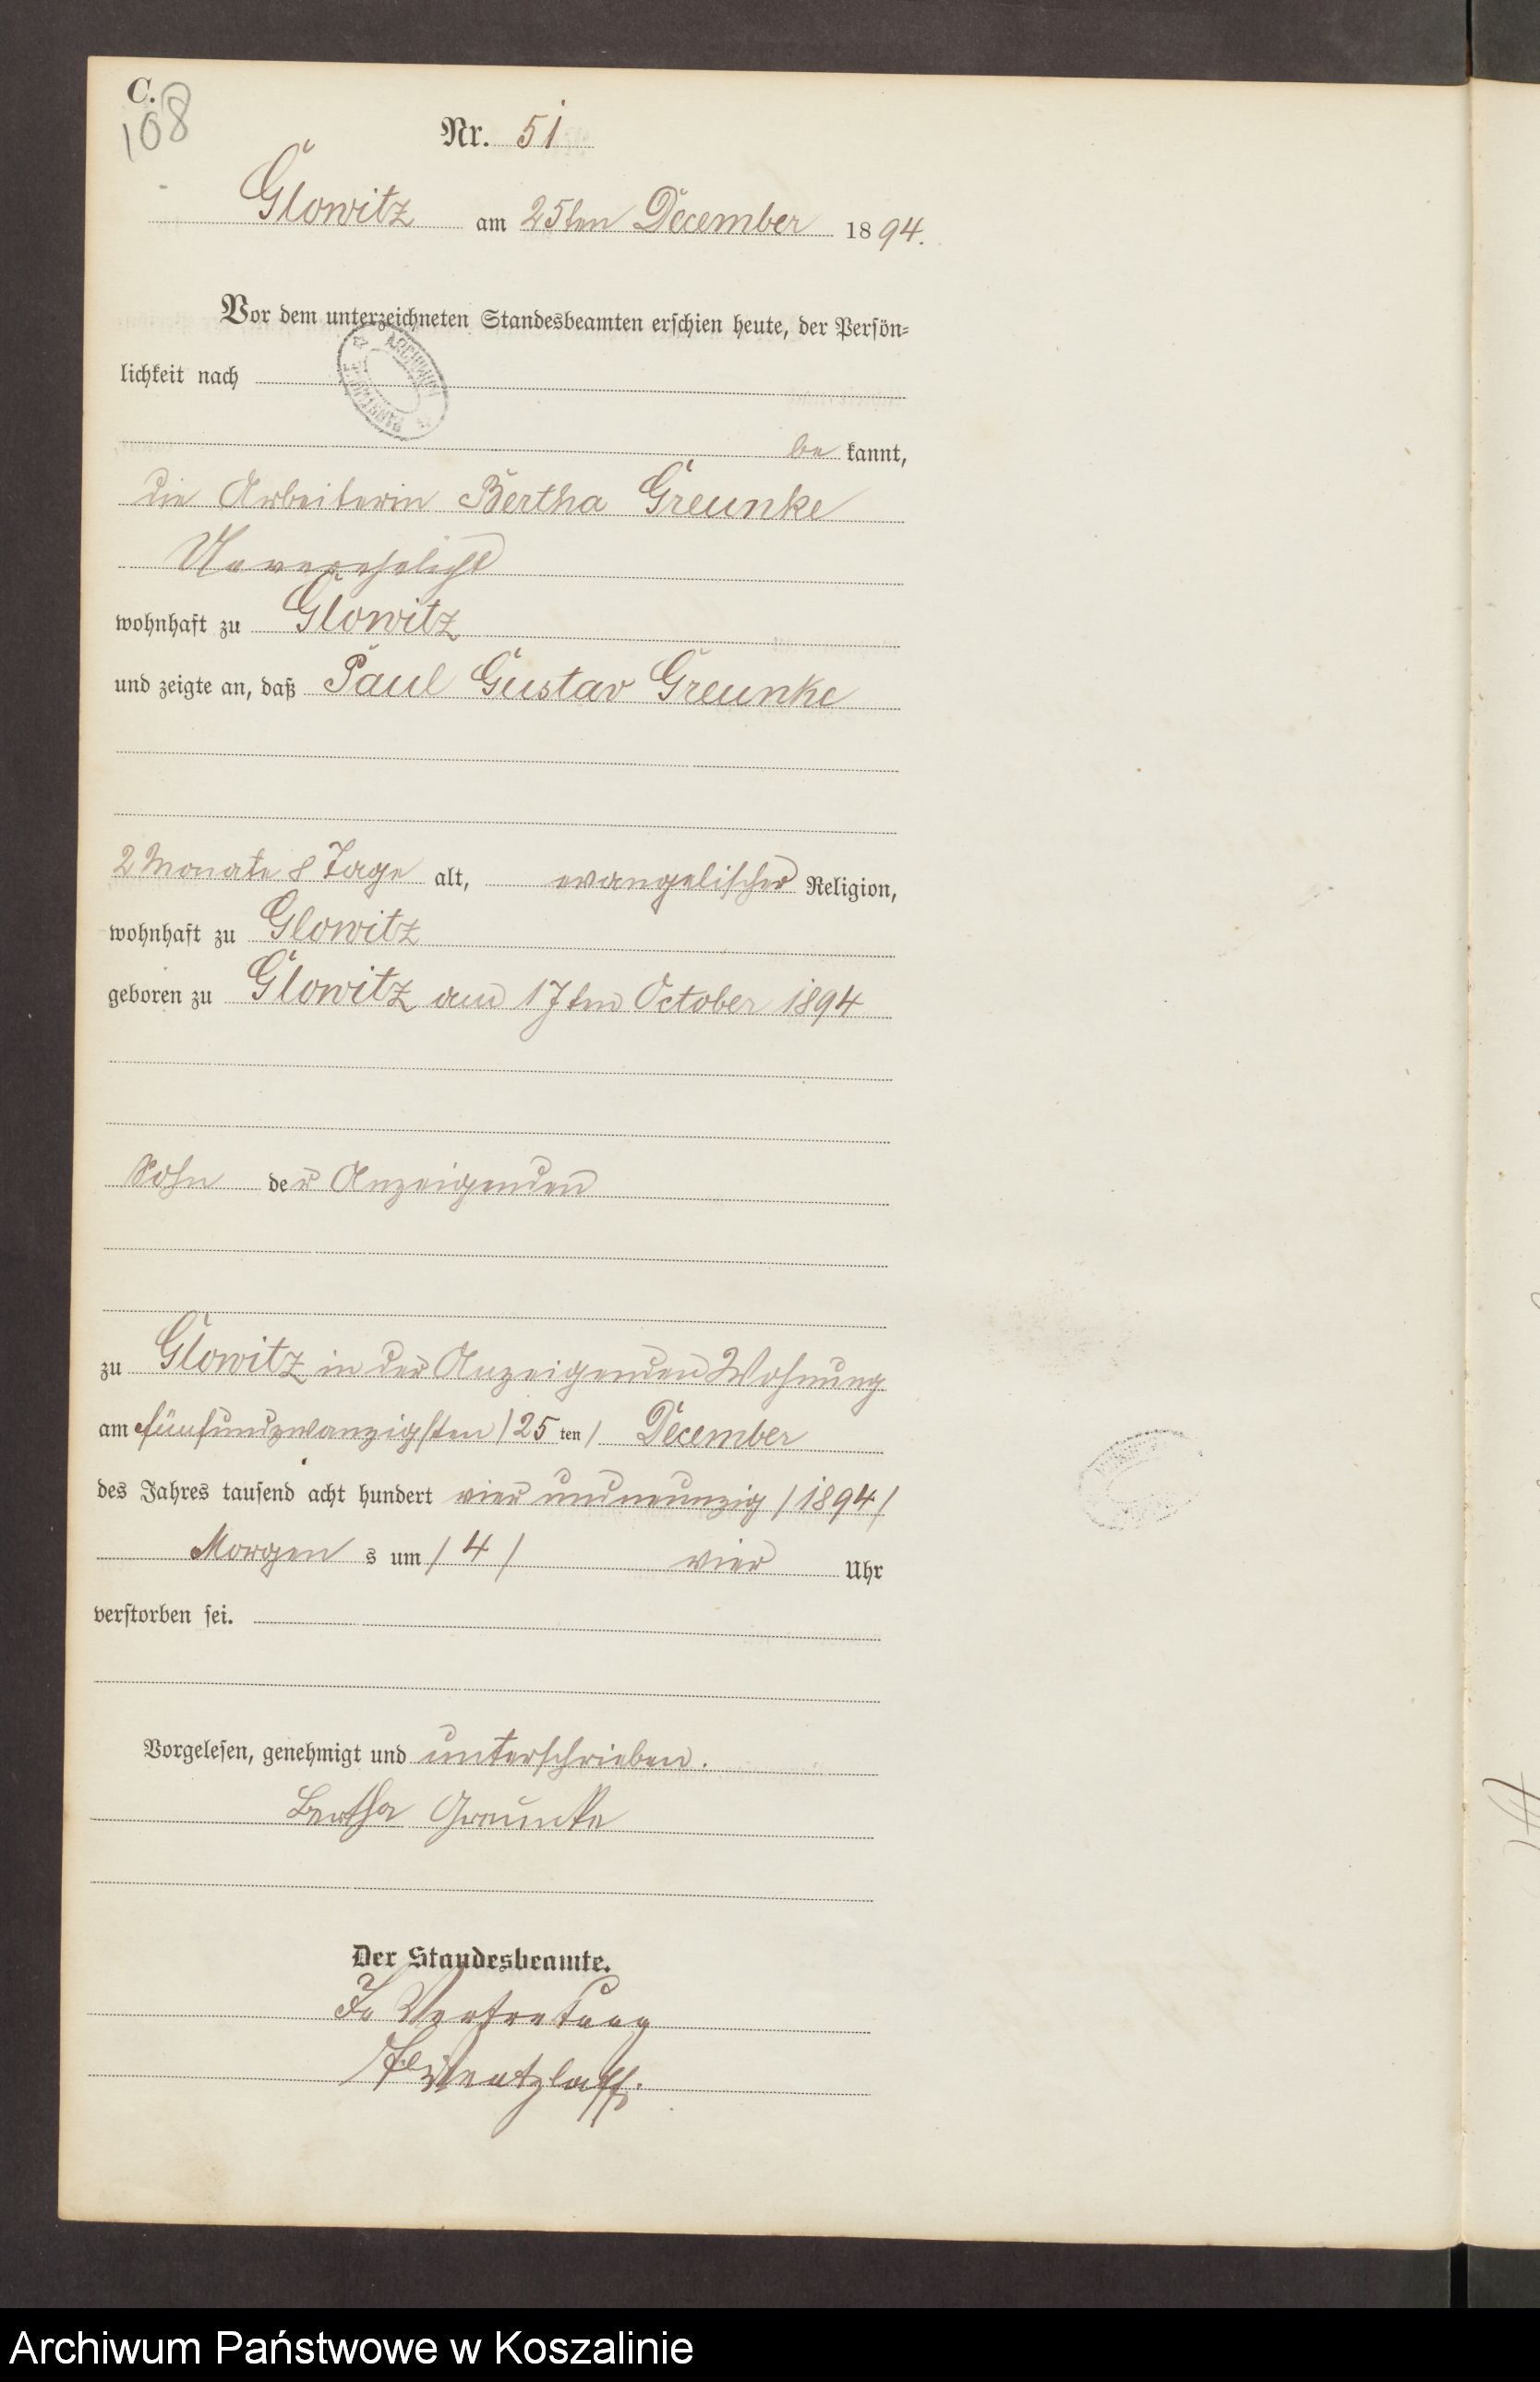 C.
108
Nr. 51
Glowitz am 25ten December 1894.
Vor dem unterzeichneten Standesbeamten erschien heute, der Persön-
lichkeit nach
be kannt,
die Arbeiterin Bertha Greunke
Unverehelicht
wohnhaft zu Glowitz
und zeigte an, daß Paul Gustav Greunke
2 Monate 8 Tage alt, evangelischer Religion,
wohnhaft zu Glowitz
geboren zu Glowitz am 17ten October 1894
Sohn der Anzeigenden
zu Glowitz in der Anzeigenden Wohnung
am fünfundzwanzigsten /25 ten/ December
des Jahres tausend acht hundert vier undneunzig /1894/
Morgen s um /4/ vier Uhr
verstorben sei.
Vorgelesen, genehmigt und unterschrieben.
Bertha Greunke
Der Standesbeamte.
In Vertretung
Wentzlaff.
Archiwum Państwowe w Koszalinie